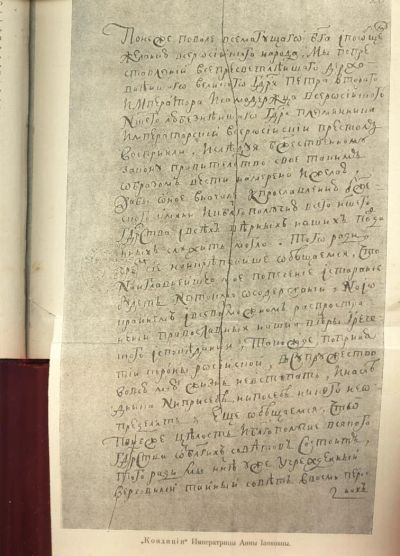 Понеже поволе всемогущаго Бга ї по общему
желанию всеросиїскаго народа, мы по пре
ставленїи всепресветлейшаго дер
жавнейшаго великаго гдря Петра втораго
императора и самодержца всеросиїского
ншего любезнейшаго гдря племянника
императорскиї всеросиїскиї престолъ
восприяли, и следуя бжественному
закону правителство свое такимъ
образомъ вести намерена и желаю,
дабы оное вначале к прославлению бже
скаго имяни и к благополучию всего ншего
гдрства ї всехъ верныхъ нашихъ подда
нныхъ служить могло. Того ради
чрез сїе наикрепчайше обещаемся, что
наиглавнейшее мое попечение ї старание
будетъ не токмо о содержании, но и о
крайнемъ ї всевозможномъ распростра
нении православныя нашия веры грече
скаго исповедания, також по прия
тии короны росиїской, в супружество
во всю мою жизнь не вступать, и наслѣ
дника ни при себе, ни по себе никого не о
пределять. Еще обещаемся, что
понеже целость и благополучие всякого
гдрства от благих советовъ состоитъ,
того ради мы ныне уже учрежденный
верховный тайный советъ в восми пер
сонахъ
„Кондиціи“ Императрицы Анны Іоанновны.